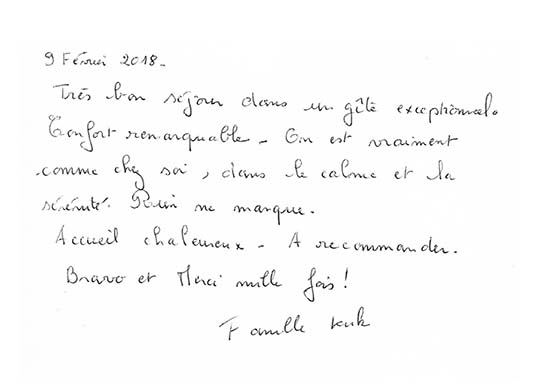 9 Février 2018.
Très bon séjour dans un gîte exceptionnel.
Confort remarquable - On est vraiment
comme chez soi, dans le calme et la
sérénité. Rien ne manque.
Accueil chaleureux - A recommander.
Bravo et Merci mille fois!
Famille